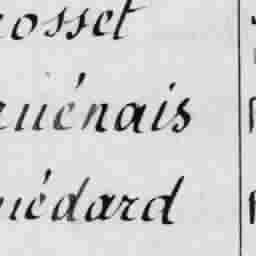 rosset
ruénais
uédard